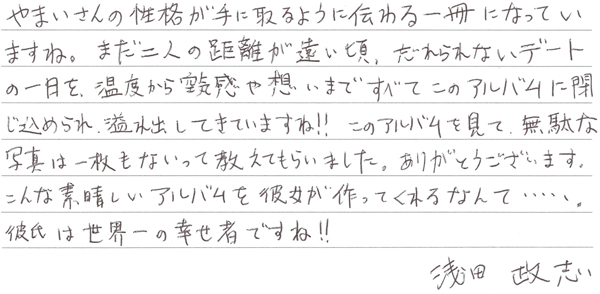 やまいさんの性格が手に取るように伝わる一冊になってい
ますね。まだ二人の距離が遠い頃、忘れられないデート
の一日を、温度から空気感や想いまですべてこのアルバムに閉
じ込められ、溢れ出してきていますね!! このアルバムを見て、無駄な
写真は一枚もないって教えてもらいました。ありがとうございます。
こんな素晴しいアルバムを彼女が作ってくれるなんて……。
彼氏は世界一の幸せ者ですね!!
浅田 政志